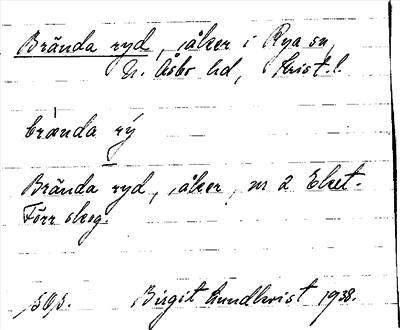 Brända ryd, åker i Rya sn,
N. Åsbo hd, Krist. l.
brànda rý
Brända ryd, åker, nr 2 Elset.
Förr skog.
Birgit Lundkvist 1938.